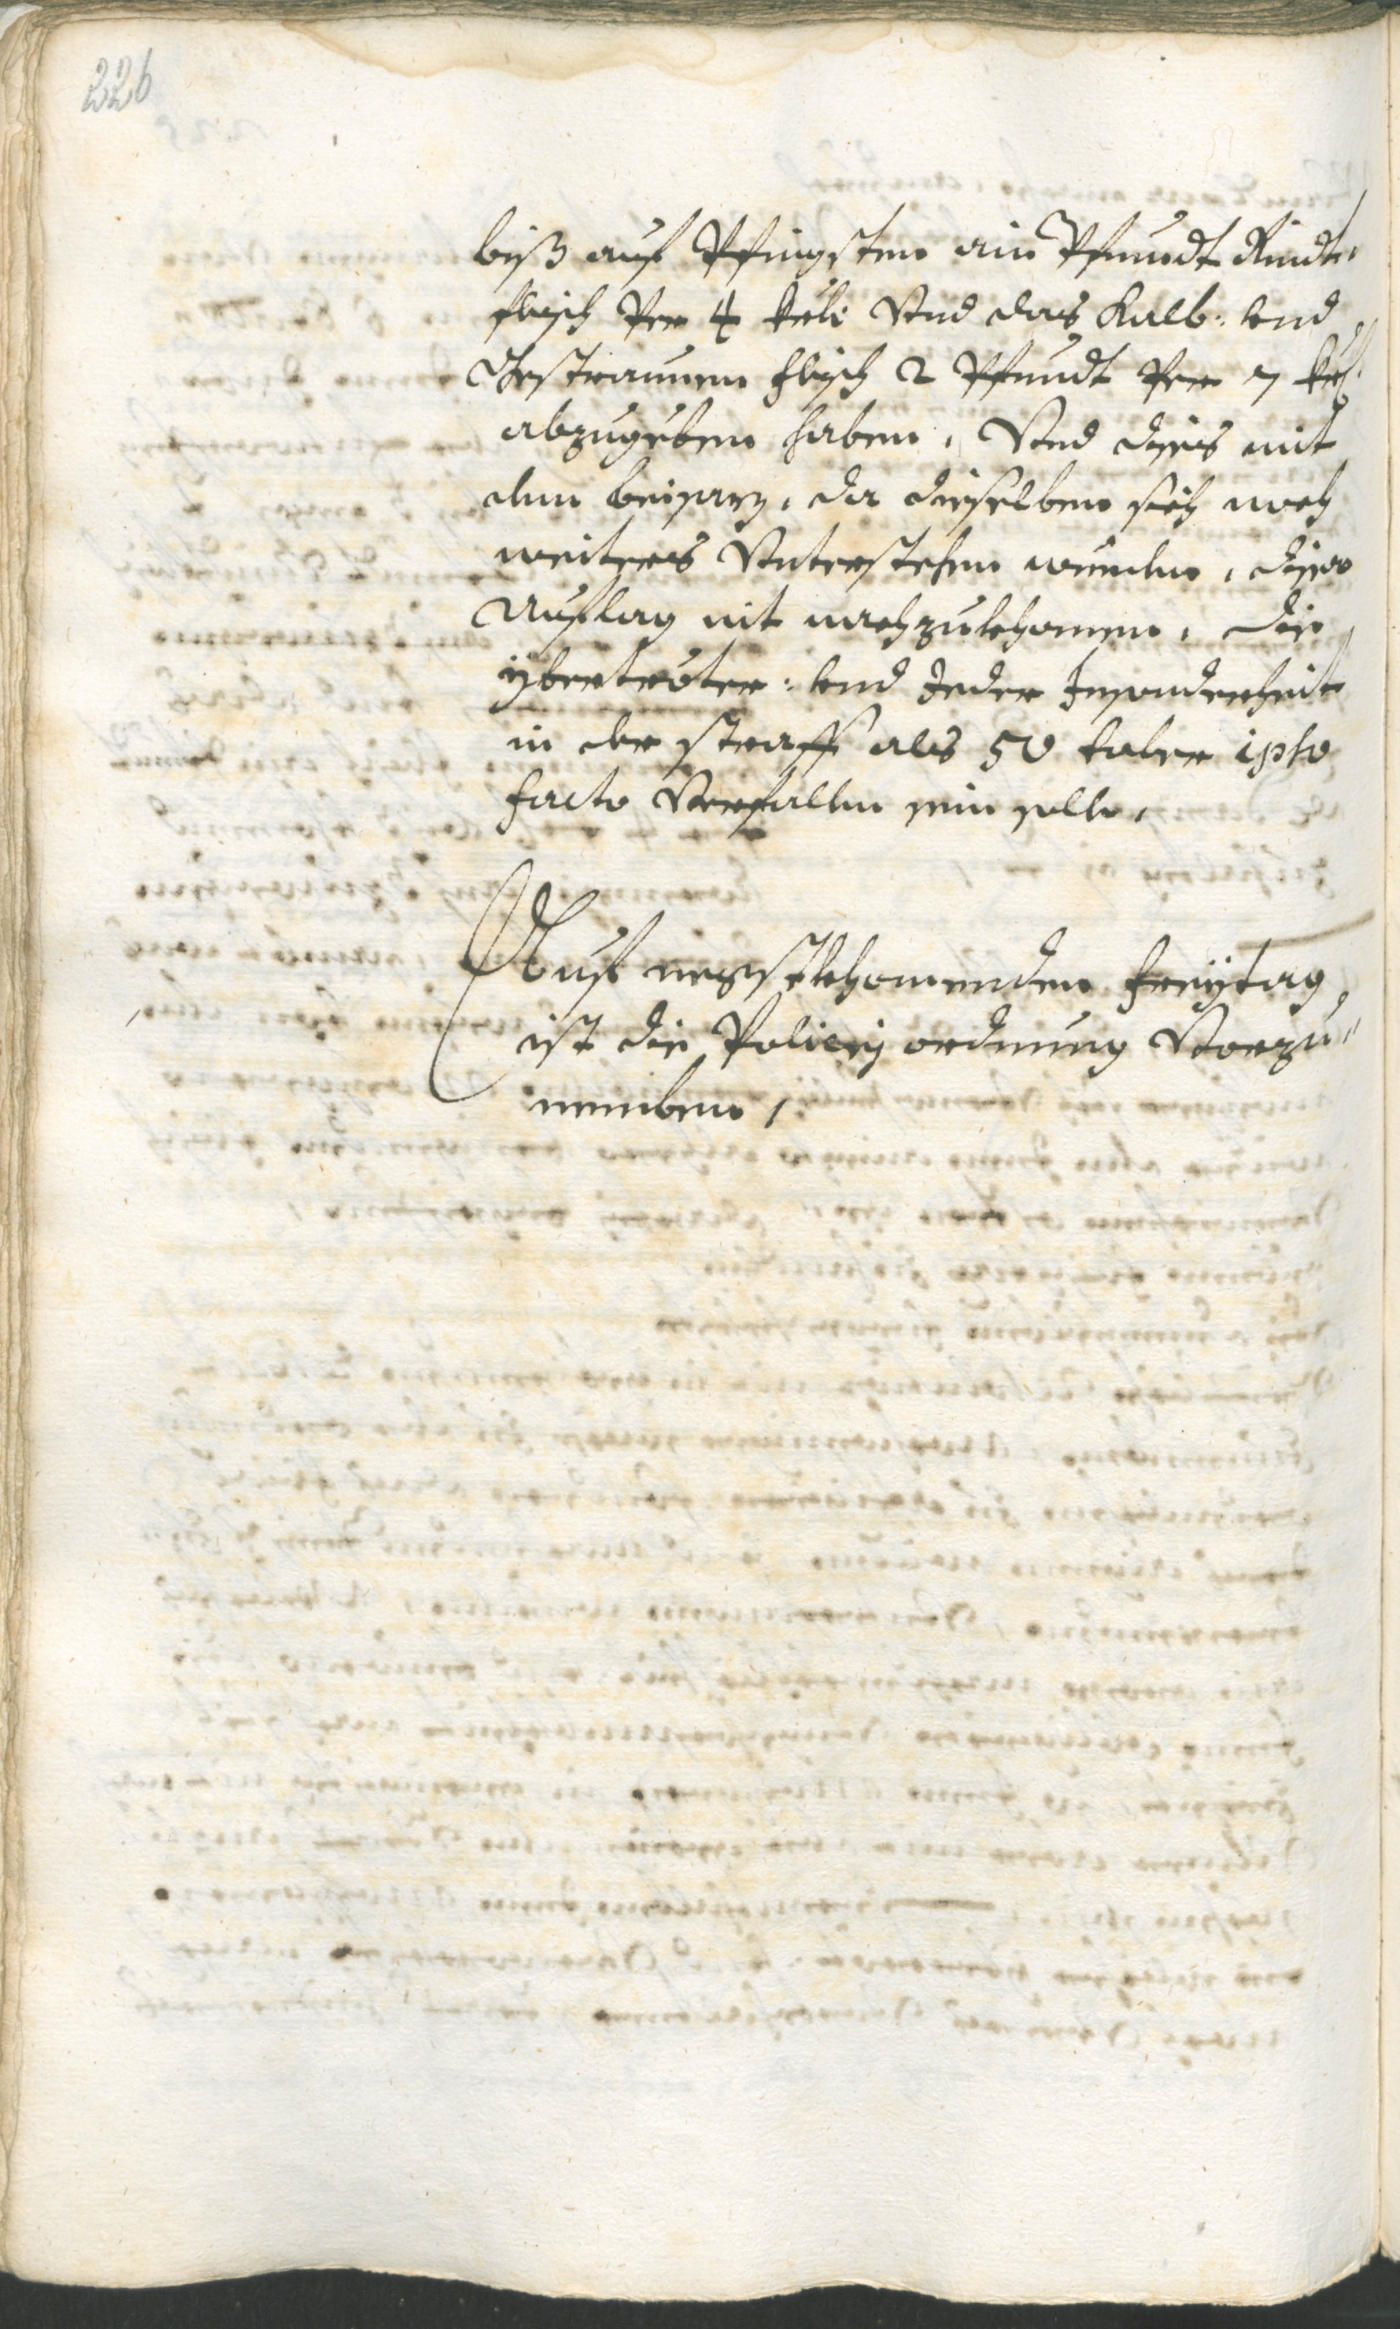 226
biß auf Pfingsten ain Pfundt Rindt„
flaisch Per 4 kr und das Kalb: vnd
Gestraunen flaisch 2 Pfundt Per 7 kr
abzugeben haben, Vnd dises mit
dem beisaz, da dieselben sich noch
weiters Vnterstehen wurden, diser
Auflag nit nachzukhomen, die
ybertreter: vnd Jeder Insonderheit
in der straff als 50 taler ipso
facto Verfallen sein solle,
Auf negstkhomenden Freÿtag
ist die Policeÿ ordnung Vorzu„
nemben,